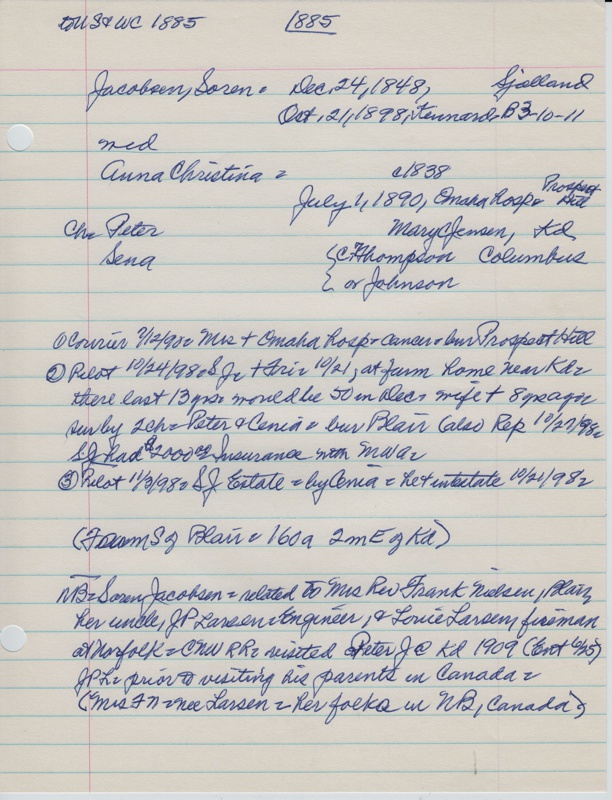 to US & WC 1885 1885
Jacobsen, Soren = Dec. 24, 1848, Sjalland
Oct. 21, 1898, Kennard = B3-10-11
md
Anna Christina = c1838
July 1, 1890, Omaha hosp = Prospect Hill
Ch = Peter Mary C Jensen, Kd
Sena {C F Thompson Columbus
{ or Johnson
① Courier 7/12/90 = Mrs + Omaha hosp = cancer = bur Prospect Hill
② Pilot 10/24/98 = S J = + Fri = 10/21, at farm home near Kd =
there last 13 yrs = would be 50 in Dec = wife + 8 yrs ago =
sur by 2 ch = Peter & Cenia = bur Blair (also Rep 10/27/98 =
SJ had $2000.00 Insurance with MWA =
③ Pilot 11/3/98 = S J Estate = by Cenia = he + intestate 10/21/98 =
(Farm S of Blair = 160a 2m E of Kd)
NB = Soren Jacobsen = related to Mrs Rev Frank Nielsen, Blair,
her uncle, JP Larsen = Engineer, & Louie Larsen, fireman
at Norfolk = CNW RR = visited Peter J @ Kd 1909 (Ent 6/25)
JPL = prior to visiting his parents in Canada =
(Mrs F N = nee Larsen = her folks in NB, Canada)